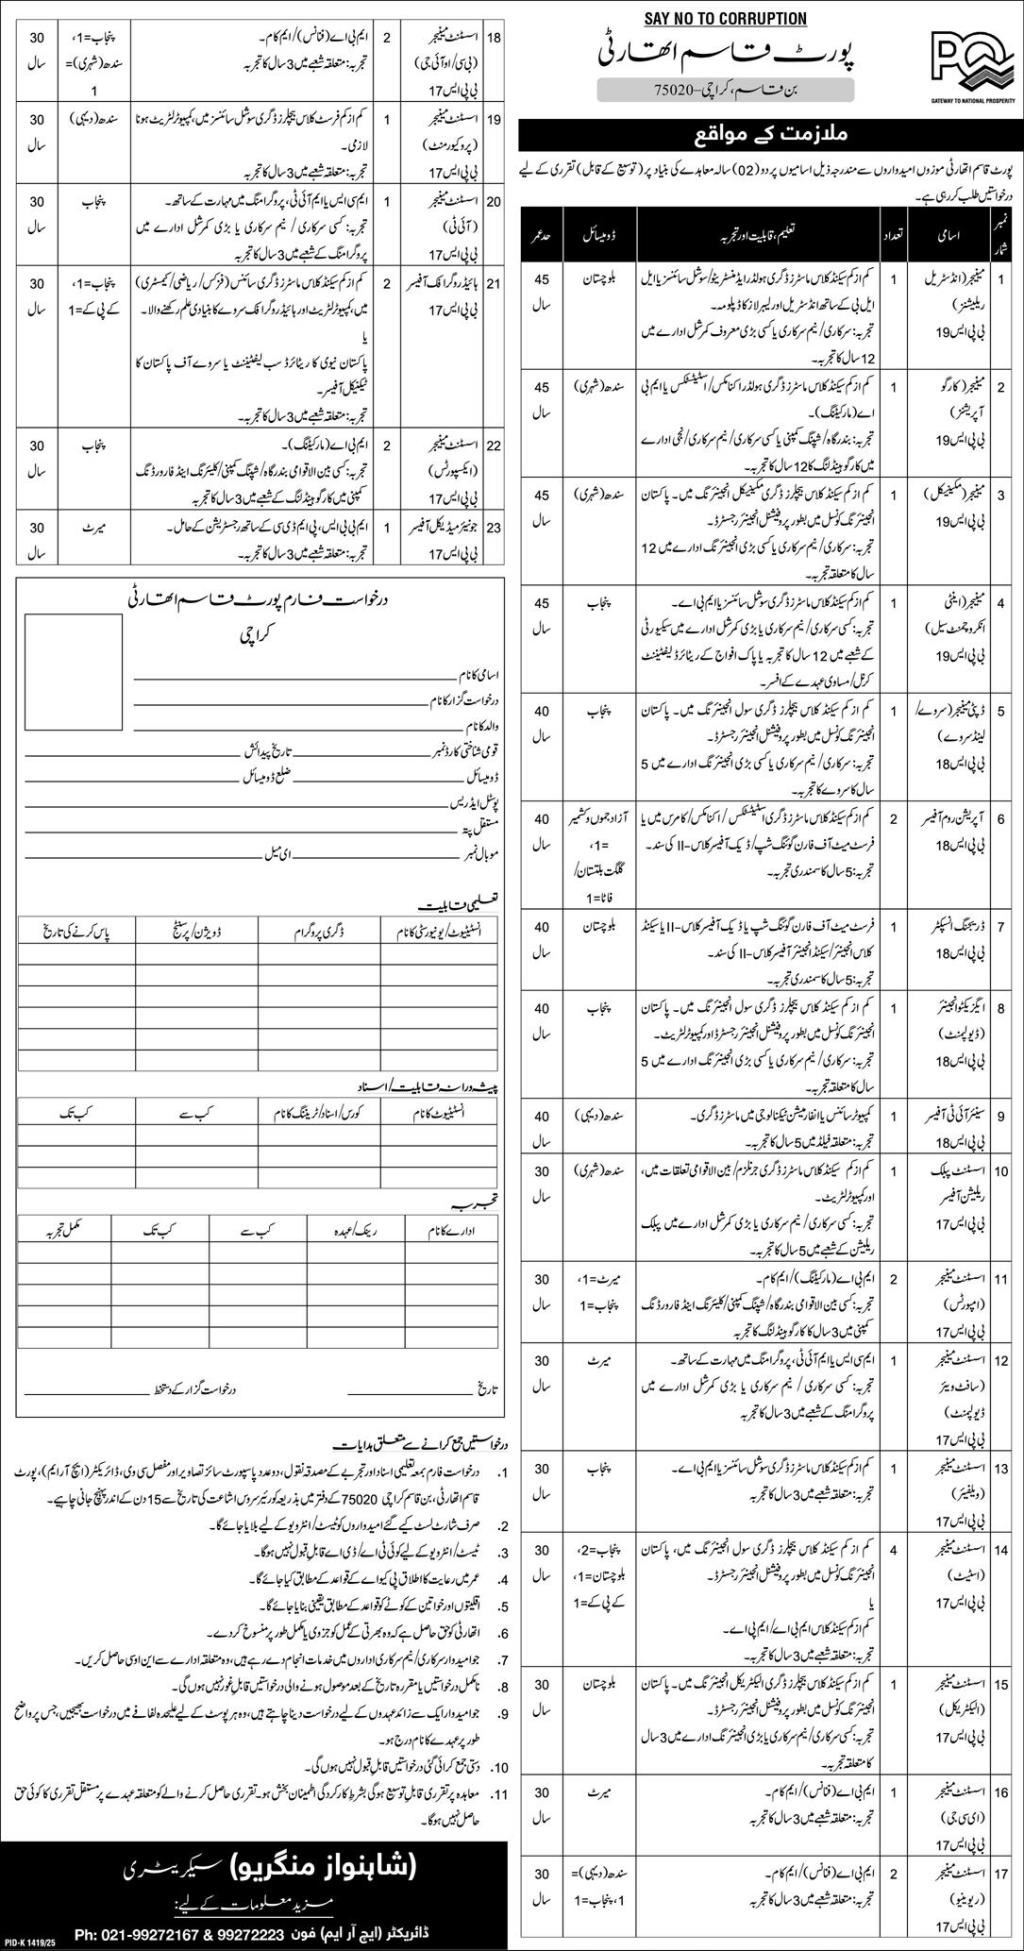 SAY NO TO CORRUPTION
پورٹ قاسم اتھارٹی
بن قاسم، کراچی-75020
PQA
GATEWAY TO NATIONAL PROSPERITY
ملازمت کے مواقع
پورٹ قاسم اتھارٹی موزوں امیدواروں سے مندرجہ ذیل اسامیوں پر دو (02) سالہ معاہدے کی بنیاد پر (توسیع کے قابل) تقرری کے لیے
درخواستیں طلب کر رہی ہے۔
نمبر شمار | اسامی | تعداد | تعلیم، قابلیت اور تجربہ | ڈومیسائل | حد عمر
1 | مینیجر (انڈسٹریل | 1 | کم از کم سیکنڈ کلاس ماسٹرز ڈگری ہولڈر ایڈمنسٹریٹو/سوشل سائنسز یا ایل | بلوچستان | 45
ریلیشنز) | ایل بی کے ساتھ انڈسٹریل اور لیبر لاز کا ڈپلومہ۔ | سال
بی پی ایس 19 | تجربہ: سرکاری/نیم سرکاری یا کسی بڑی معروف کمرشل ادارے میں
12 سال کا تجربہ۔
2 | مینیجر (کارگو | 1 | کم از کم سیکنڈ کلاس ماسٹرز ڈگری ہولڈر اکنامکس/اسٹیٹسٹکس یا ایم بی | سندھ (شہری) | 45
آپریشنز) | اے (مارکیٹنگ)۔ | سال
بی پی ایس 19 | تجربہ: بندرگاہ/شپنگ کمپنی یا کسی سرکاری/نیم سرکاری/نجی ادارے
میں کارگو ہینڈلنگ کا 12 سال کا تجربہ۔
3 | مینیجر (مکینیکل) | 1 | کم از کم سیکنڈ کلاس بیچلرز ڈگری مکینیکل انجینئرنگ میں۔ پاکستان | سندھ (شہری) | 45
بی پی ایس 19 | انجینئرنگ کونسل میں بطور پروفیشنل انجینئر رجسٹرڈ۔ | سال
تجربہ: سرکاری/نیم سرکاری یا کسی بڑی انجینئرنگ ادارے میں 12
سال کا متعلقہ تجربہ۔
4 | مینیجر (اینٹی | 1 | کم از کم سیکنڈ کلاس ماسٹرز ڈگری سوشل سائنسز یا ایم بی اے۔ | پنجاب | 45
انکروچمنٹ سیل) | تجربہ: کسی سرکاری/نیم سرکاری یا بڑی کمرشل ادارے میں سیکیورٹی | سال
بی پی ایس 19 | کے شعبے میں 12 سال کا تجربہ یا پاک افواج کے ریٹائرڈ لیفٹیننٹ
کرنل/مساوی عہدے کے افسر۔
5 | ڈپٹی مینیجر (سروے/ | 1 | کم از کم سیکنڈ کلاس بیچلرز ڈگری سول انجینئرنگ میں۔ پاکستان | پنجاب | 40
لینڈ سروے) | انجینئرنگ کونسل میں بطور پروفیشنل انجینئر رجسٹرڈ۔ | سال
بی پی ایس 18 | تجربہ: سرکاری/نیم سرکاری یا کسی بڑی انجینئرنگ ادارے میں 5
سال کا سروے کا تجربہ۔
6 | آپریشن روم آفیسر | 2 | کم از کم سیکنڈ کلاس ماسٹرز ڈگری اسٹیٹسٹکس/اکنامکس/کامرس میں یا | آزاد جموں و کشمیر | 40
بی پی ایس 18 | فرسٹ میٹ آف فارن گوئنگ شپ/ڈیک آفیسر کلاس-II کی سند۔ | =1، | سال
تجربہ: 5 سال کا سمندری تجربہ۔ | گلگت بلتستان/
فاٹا=1
7 | ڈریجنگ انسپکٹر | 1 | فرسٹ میٹ آف فارن گوئنگ شپ یا ڈیک آفیسر کلاس-II یا سیکنڈ | بلوچستان | 40
بی پی ایس 18 | کلاس انجینئر/سیکنڈ انجینئر آفیسر کلاس-II کی سند۔ | سال
تجربہ: 5 سال کا سمندری تجربہ۔
8 | ایگزیکٹو انجینئر | 1 | کم از کم سیکنڈ کلاس بیچلرز ڈگری سول انجینئرنگ میں۔ پاکستان | پنجاب | 40
(ڈیولپمنٹ) | انجینئرنگ کونسل میں بطور پروفیشنل انجینئر رجسٹرڈ اور کمپیوٹر لٹریٹ۔ | سال
بی پی ایس 18 | تجربہ: سرکاری/نیم سرکاری یا کسی بڑی انجینئرنگ ادارے میں 5
سال کا متعلقہ تجربہ۔
9 | سینئر آئی ٹی آفیسر | 1 | کمپیوٹر سائنس یا انفارمیشن ٹیکنالوجی میں ماسٹرز ڈگری۔ | سندھ (دیہی) | 40
بی پی ایس 18 | تجربہ: متعلقہ فیلڈ میں 5 سال کا تجربہ۔ | سال
10 | اسسٹنٹ پبلک | 1 | کم از کم سیکنڈ کلاس ماسٹرز ڈگری جرنلزم/بین الاقوامی تعلقات میں، | سندھ (شہری) | 30
ریلیشن آفیسر | اور کمپیوٹر لٹریٹ۔ | سال
بی پی ایس 17 | تجربہ: کسی سرکاری/نیم سرکاری یا بڑی کمرشل ادارے میں پبلک
ریلیشن کے شعبے میں 5 سال کا تجربہ۔
11 | اسسٹنٹ مینیجر | 2 | ایم بی اے (مارکیٹنگ)/ایم کام۔ | میرٹ=1، | 30
(امپورٹس) | تجربہ: کسی بین الاقوامی بندرگاہ/شپنگ کمپنی/کلیئرنگ اینڈ فارورڈنگ | پنجاب=1 | سال
بی پی ایس 17 | کمپنی میں 3 سال کا کارگو ہینڈلنگ کا تجربہ
12 | اسسٹنٹ مینیجر | 1 | ایم سی ایس یا ایم آئی ٹی، پروگرامنگ میں مہارت کے ساتھ۔ | میرٹ | 30
(سافٹ ویئر | تجربہ: کسی سرکاری / نیم سرکاری یا بڑی کمرشل ادارے میں | سال
ڈیولپمنٹ) | پروگرامنگ کے شعبے میں 3 سال کا تجربہ
بی پی ایس 17
13 | اسسٹنٹ مینیجر | 1 | کم از کم سیکنڈ کلاس ماسٹرز ڈگری سوشل سائنسز یا ایم بی اے۔ | پنجاب | 30
(ویلفیئر) | تجربہ: متعلقہ شعبے میں 3 سال کا تجربہ | سال
بی پی ایس 17
14 | اسسٹنٹ مینیجر | 4 | کم از کم سیکنڈ کلاس بیچلرز ڈگری سول انجینئرنگ میں، پاکستان | پنجاب=2، | 30
(اسٹیٹ) | انجینئرنگ کونسل میں بطور پروفیشنل انجینئر رجسٹرڈ۔ | بلوچستان=1، | سال
بی پی ایس 17 | یا | کے پی کے=1
کم از کم سیکنڈ کلاس ایم بی اے/ایم پی اے۔
تجربہ: متعلقہ شعبے میں 3 سال کا تجربہ
15 | اسسٹنٹ مینیجر | 1 | کم از کم سیکنڈ کلاس بیچلرز ڈگری الیکٹریکل انجینئرنگ میں۔ پاکستان | بلوچستان | 30
(الیکٹریکل) | انجینئرنگ کونسل میں بطور پروفیشنل انجینئر رجسٹرڈ۔ | سال
بی پی ایس 17 | تجربہ: کسی سرکاری/نیم سرکاری یا بڑی انجینئرنگ ادارے میں 3 سال
کا متعلقہ تجربہ۔
16 | اسسٹنٹ مینیجر | 1 | ایم بی اے (فنانس)/ایم کام۔ | میرٹ | 30
(ای سی جی) | تجربہ: متعلقہ شعبے میں 3 سال کا تجربہ | سال
بی پی ایس 17
17 | اسسٹنٹ مینیجر | 2 | ایم بی اے (فنانس)/ایم کام۔ | سندھ (دیہی)= | 30
(ریونیو) | تجربہ: متعلقہ شعبے میں 3 سال کا تجربہ | 1، پنجاب=1 | سال
بی پی ایس 17
18 | اسسٹنٹ مینیجر | 2 | ایم بی اے (فنانس)/ایم کام۔ | پنجاب=1، | 30
(بی سی/او آئی جی) | تجربہ: متعلقہ شعبے میں 3 سال کا تجربہ | سندھ (شہری)= | سال
بی پی ایس 17 | 1
19 | اسسٹنٹ مینیجر | 1 | کم از کم فرسٹ کلاس بیچلرز ڈگری سوشل سائنسز میں، کمپیوٹر لٹریٹ ہونا | سندھ (دیہی) | 30
(پروکیورمنٹ) | لازمی۔ | سال
بی پی ایس 17 | تجربہ: متعلقہ شعبے میں 3 سال کا تجربہ
20 | اسسٹنٹ مینیجر | 1 | ایم سی ایس یا ایم آئی ٹی، پروگرامنگ میں مہارت کے ساتھ۔ | پنجاب | 30
(آئی ٹی) | تجربہ: کسی سرکاری / نیم سرکاری یا بڑی کمرشل ادارے میں | سال
بی پی ایس 17 | پروگرامنگ کے شعبے میں 3 سال کا تجربہ
21 | ہائیڈروگرافک آفیسر | 2 | کم از کم سیکنڈ کلاس ماسٹرز ڈگری سائنس (فزکس/ریاضی/کیمسٹری) | پنجاب=1، | 30
بی پی ایس 17 | میں، کمپیوٹر لٹریٹ اور ہائیڈروگرافک سروے کا بنیادی علم رکھنے والا۔ | کے پی کے=1 | سال
یا
پاکستان نیوی کا ریٹائرڈ سب لیفٹیننٹ یا سروے آف پاکستان کا
ٹیکنیکل آفیسر۔
تجربہ: متعلقہ شعبے میں 3 سال کا تجربہ۔
22 | اسسٹنٹ مینیجر | 2 | ایم بی اے (مارکیٹنگ)۔ | پنجاب | 30
(ایکسپورٹس) | تجربہ: کسی بین الاقوامی بندرگاہ/شپنگ کمپنی/کلیئرنگ اینڈ فارورڈنگ | سال
بی پی ایس 17 | کمپنی میں کارگو ہینڈلنگ کے شعبے میں 3 سال کا تجربہ
23 | جونیئر میڈیکل آفیسر | 1 | ایم بی بی ایس، پی ایم ڈی سی کے ساتھ رجسٹریشن کے حامل۔ | میرٹ | 30
بی پی ایس 17 | تجربہ: متعلقہ شعبے میں 3 سال کا تجربہ۔ | سال
درخواست فارم پورٹ قاسم اتھارٹی
کراچی
اسامی کا نام
درخواست گزار کا نام
والد کا نام
قومی شناختی کارڈ نمبر | تاریخ پیدائش
ڈومیسائل | ضلع ڈومیسائل
پوسٹل ایڈریس
مستقل پتہ
موبائل نمبر | ای میل
تعلیمی قابلیت
انسٹیٹیوٹ/یونیورسٹی کا نام | ڈگری پروگرام | ڈویژن/پرسنٹیج | پاس کرنے کی تاریخ
پیشہ ورانہ قابلیت/اسناد
انسٹیٹیوٹ کا نام | کورس/اسناد/ٹریننگ کا نام | کب سے | کب تک
تجربہ
ادارے کا نام | رینک/عہدہ | کب سے | کب تک | مکمل تجربہ
تاریخ | درخواست گزار کے دستخط
درخواستیں جمع کرانے سے متعلق ہدایات
1. درخواست فارم بمعہ تعلیمی اسناد اور تجربے کے مصدقہ نقول، دو عدد پاسپورٹ سائز تصاویر اور مفصل سی وی، ڈائریکٹر (ایچ آر ایم)، پورٹ
قاسم اتھارٹی، بن قاسم کراچی 75020 کے دفتر میں بذریعہ کوریئر سروس اشاعت کی تاریخ سے 15 دن کے اندر پہنچ جانی چاہیے۔
2. صرف شارٹ لسٹ کیے گئے امیدواروں کو ٹیسٹ/انٹرویو کے لیے بلایا جائے گا۔
3. ٹیسٹ/انٹرویو کے لیے کوئی ٹی اے/ڈی اے قابل قبول نہیں ہوگا۔
4. عمر میں رعایت کا اطلاق پی کیو اے کے قواعد کے مطابق کیا جائے گا۔
5. اقلیتوں اور خواتین کے کوٹے کو قواعد کے مطابق یقینی بنایا جائے گا۔
6. اتھارٹی کو حق حاصل ہے کہ وہ بھرتی کے عمل کو جزوی یا مکمل طور پر منسوخ کردے۔
7. جو امیدوار سرکاری/نیم سرکاری اداروں میں خدمات انجام دے رہے ہیں، وہ متعلقہ ادارے سے این او سی حاصل کریں۔
8. نامکمل درخواستیں یا مقررہ تاریخ کے بعد موصول ہونے والی درخواستیں قابل غور نہیں ہوں گی۔
9. جو امیدوار ایک سے زائد عہدوں کے لیے درخواست دینا چاہتے ہیں، وہ ہر پوسٹ کے لیے علیحدہ لفافے میں درخواست بھیجیں، جس پر واضح
طور پر عہدے کا نام درج ہو۔
10. دستی جمع کرائی گئی درخواستیں قابل قبول نہیں ہوں گی۔
11. معاہدہ پر تقرری قابل توسیع ہوگی بشرط کارکردگی اطمینان بخش ہو۔ تقرری حاصل کرنے والے کو متعلقہ عہدے پر مستقل تقرری کا کوئی حق
حاصل نہیں ہوگا۔
(شاہنواز منگریو) سیکریٹری
مزید معلومات کے لیے:
ڈائریکٹر (ایچ آر ایم) فون Ph: 021-99272167 & 99272223
PID-K 1419/25